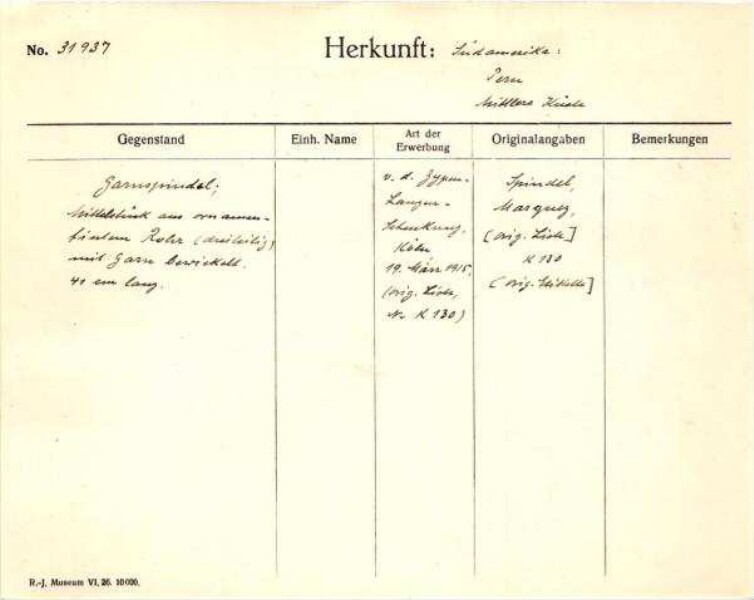 No. 31937
Herkunft: Südamerika:
Peru
Mittlere Küste
Gegenstand
Einh. Name
Art der
Erwerbung
Originalangaben
Bemerkungen
Garnspindel;
Mittelstück aus ornamen-
tiertem Rohr (dreiteilig)
mit Garn bewickelt.
41 cm lang.
v. d. Zypen-
Langen-
Schenkung,
Köln
19. März 1915,
(orig. Liste,
Nr K 130)
Spindel,
Marquez,
[orig. Liste]
K 130
[orig. Etikette]
R.-J. Museum VI, 26. 10000.